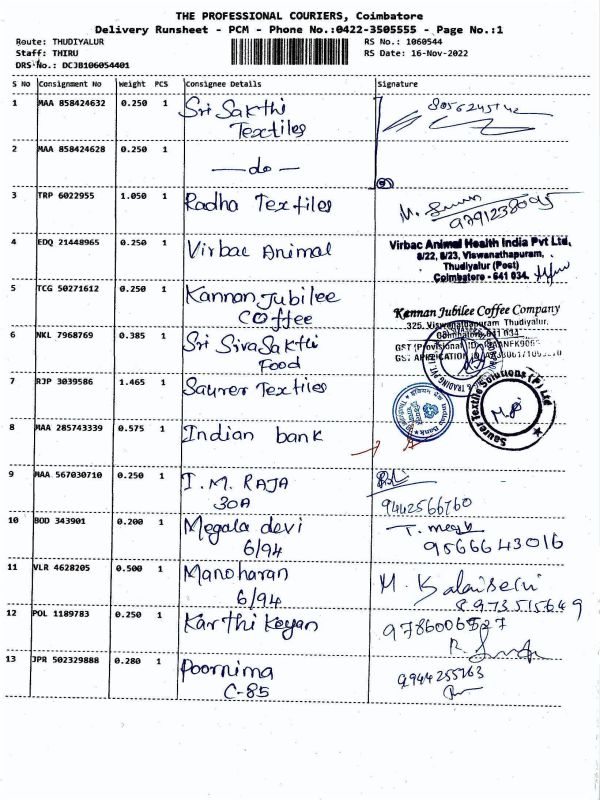 THE PROFESSIONAL COURIERS, Coimbatore
Delivery Runsheet - PCM - Phone No.:0422-3505555 - Page No.:1
Route: THUDIYALUR RS No.: 1060544
Staff: THIRU RS Date: 16-Nov-2022
DRS No.: DCJB106054401
S No Consignment No Weight PCS Consignee Details Signature
1 MAA 858424632 0.250 1 Sri Sakthi
Textiles
2 MAA 858424628 0.250 1 —do—
3 TRP 6022955 1.050 1 Radha Textiles
4 EDQ 21448965 0.250 1 Virbac Animal
Virbac Animal Health India Pvt Ltd,
8/22, 8/23, Viswanathapuram,
Thudiyalur (Post)
Coimbatore - 641 034.
5 TCG 50271612 0.250 1 Kannan Jubilee
Coffee
Kannan Jubilee Coffee Company
325, Viswanathapuram Thudiyalur,
Coimbatore 641 034
6 NKL 7968769 0.385 1 Sri SivaSakthi
Food
7 RJP 3039586 1.465 1 Saurer Textiles
Saurer Textile Solutions (P) Ltd
8 MAA 285743339 0.575 1 Indian bank
9 MAA 567030710 0.250 1 I.M. RAJA
30A
9442566760
10 BOD 343901 0.200 1 Megala devi
6/94
9566643016
11 VLR 4628205 0.500 1 Manoharan
6/94
M. Kalaiselvi
8973515649
12 POL 1189783 0.250 1 Karthikeyan
9786006527
13 JPR 502329888 0.280 1 Poornima
C-85
9944255763